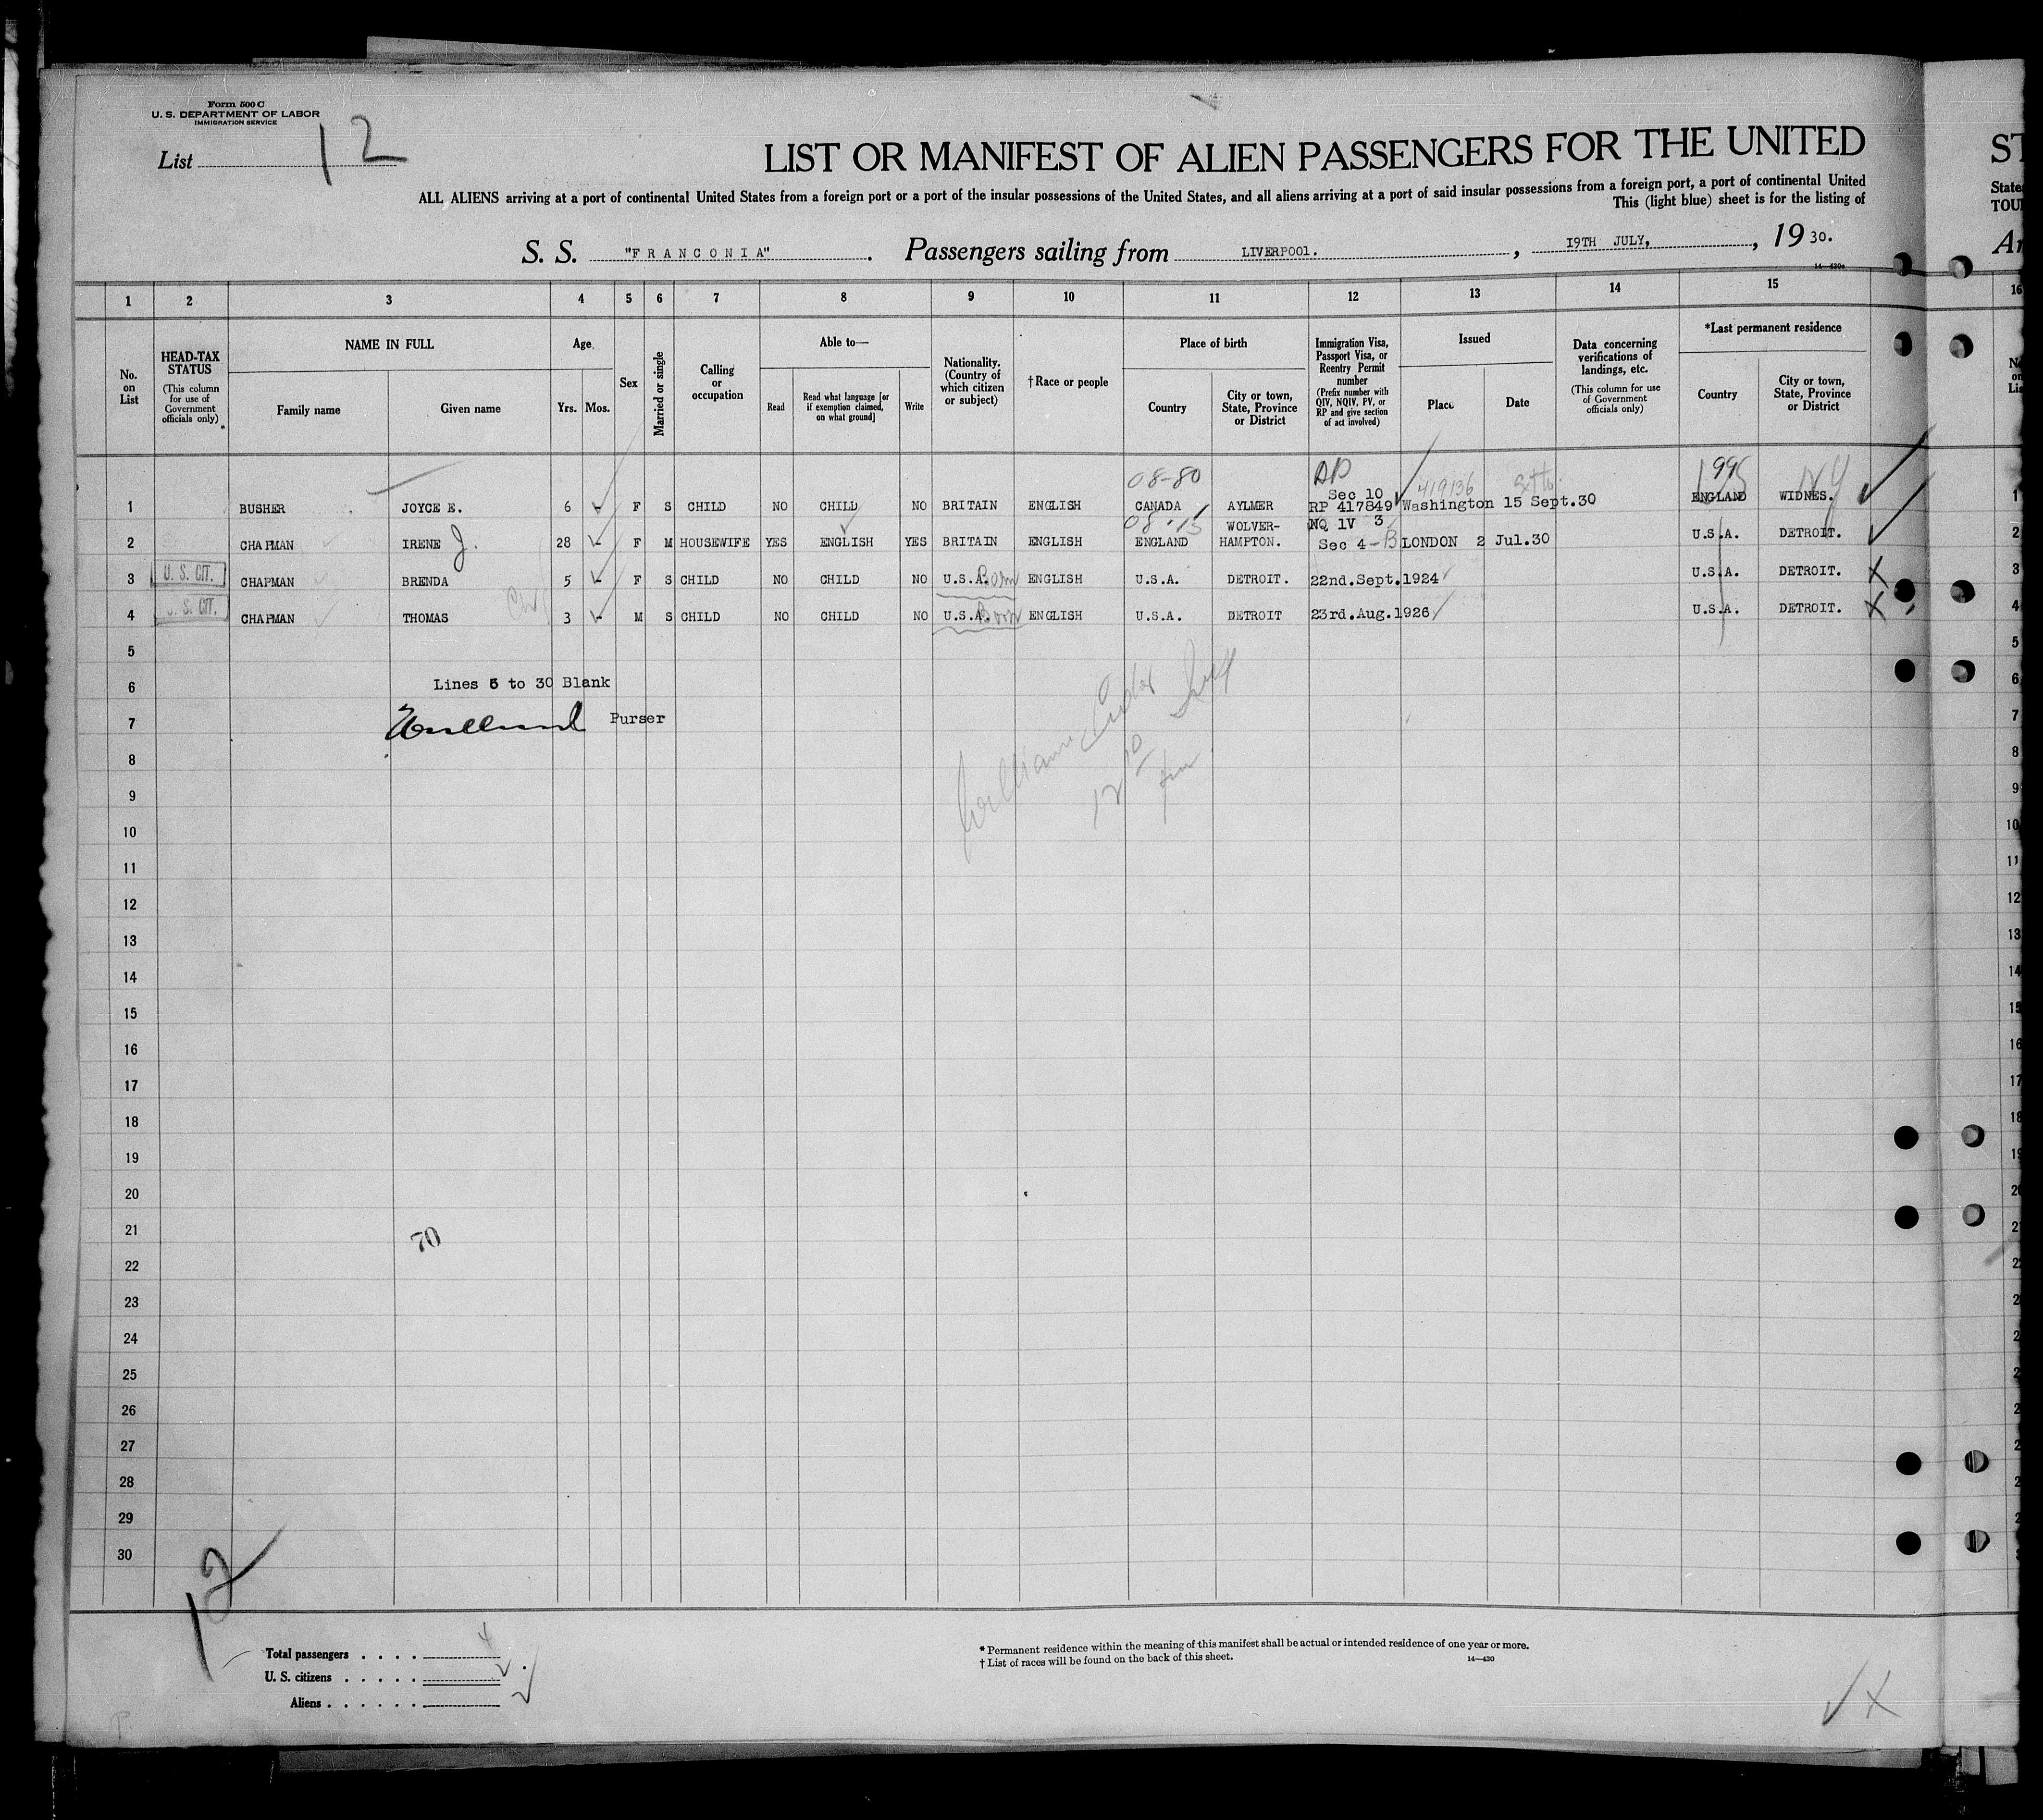 Form 500 C
U. S. DEPARTMENT OF LABOR
IMMIGRATION SERVICE
List 12
LIST OR MANIFEST OF ALIEN PASSENGERS FOR THE UNITED
ST
ALL ALIENS arriving at a port of continental United States from a foreign port or a port of the insular possessions of the United States, and all aliens arriving at a port of said insular possessions from a foreign port, a port of continental United
State
This (light blue) sheet is for the listing of
TOU
S. S. "FRANCONIA". Passengers sailing from LIVERPOOl. , 19TH JULY, , 19 30.
Ar
1 2 3 4 5 6 7 8 9 10 11 12 13 14 15 16
No. on List
HEAD-TAX STATUS (This column for use of Government officials only)
NAME IN FULL
Family name
Given name
Age
Yrs. Mos.
Sex
Married or single
Calling or occupation
Able to—
Read
Read what language [or if exemption claimed, on what ground]
Write
Nationality. (Country of which citizen or subject)
†Race or people
Place of birth
Country
City or town, State, Province or District
Immigration Visa, Passport Visa, or Reentry Permit number (Prefix number with QIV, NQIV, PV, or RP and give section of act involved)
Issued
Place
Date
Data concerning verifications of landings, etc. (This column for use of Government officials only)
*Last permanent residence
Country
City or town, State, Province or District
08-80
Sec 10 419136
1 BUSHER JOYCE E. 6 - F S CHILD NO CHILD NO BRITAIN ENGLISH CANADA AYLMER RP 417849 Washington 15 Sept.30 ENGLAND WIDNES. 1
08-15 WOLVER- NQ 1V 3
2 CHAPMAN IRENE J. 28 - F M HOUSEWIFE YES ENGLISH YES BRITAIN ENGLISH ENGLAND HAMPTON. Sec 4-B LONDON 2 Jul.30 U.S.A. DETROIT. 2
3 U. S. CIT. CHAPMAN BRENDA 5 - F S CHILD NO CHILD NO U.S.A. Born ENGLISH U.S.A. DETROIT. 22nd.Sept.1924 U.S.A. DETROIT. X 3
4 U. S. CIT. CHAPMAN THOMAS 3 - M S CHILD NO CHILD NO U.S.A. Born ENGLISH U.S.A. DETROIT 23rd.Aug.1926 U.S.A. DETROIT. X 4
5
6 Lines 5 to 30 Blank
7 Purser
8
9
10
11
12
13
14
15
16
17
18
19
20
21
70
22
23
24
25
26
27
28
29
30
12
Total passengers . . . . 4
U. S. citizens . . . . .
Aliens . . . . . .
* Permanent residence within the meaning of this manifest shall be actual or intended residence of one year or more.
† List of races will be found on the back of this sheet.
14—430